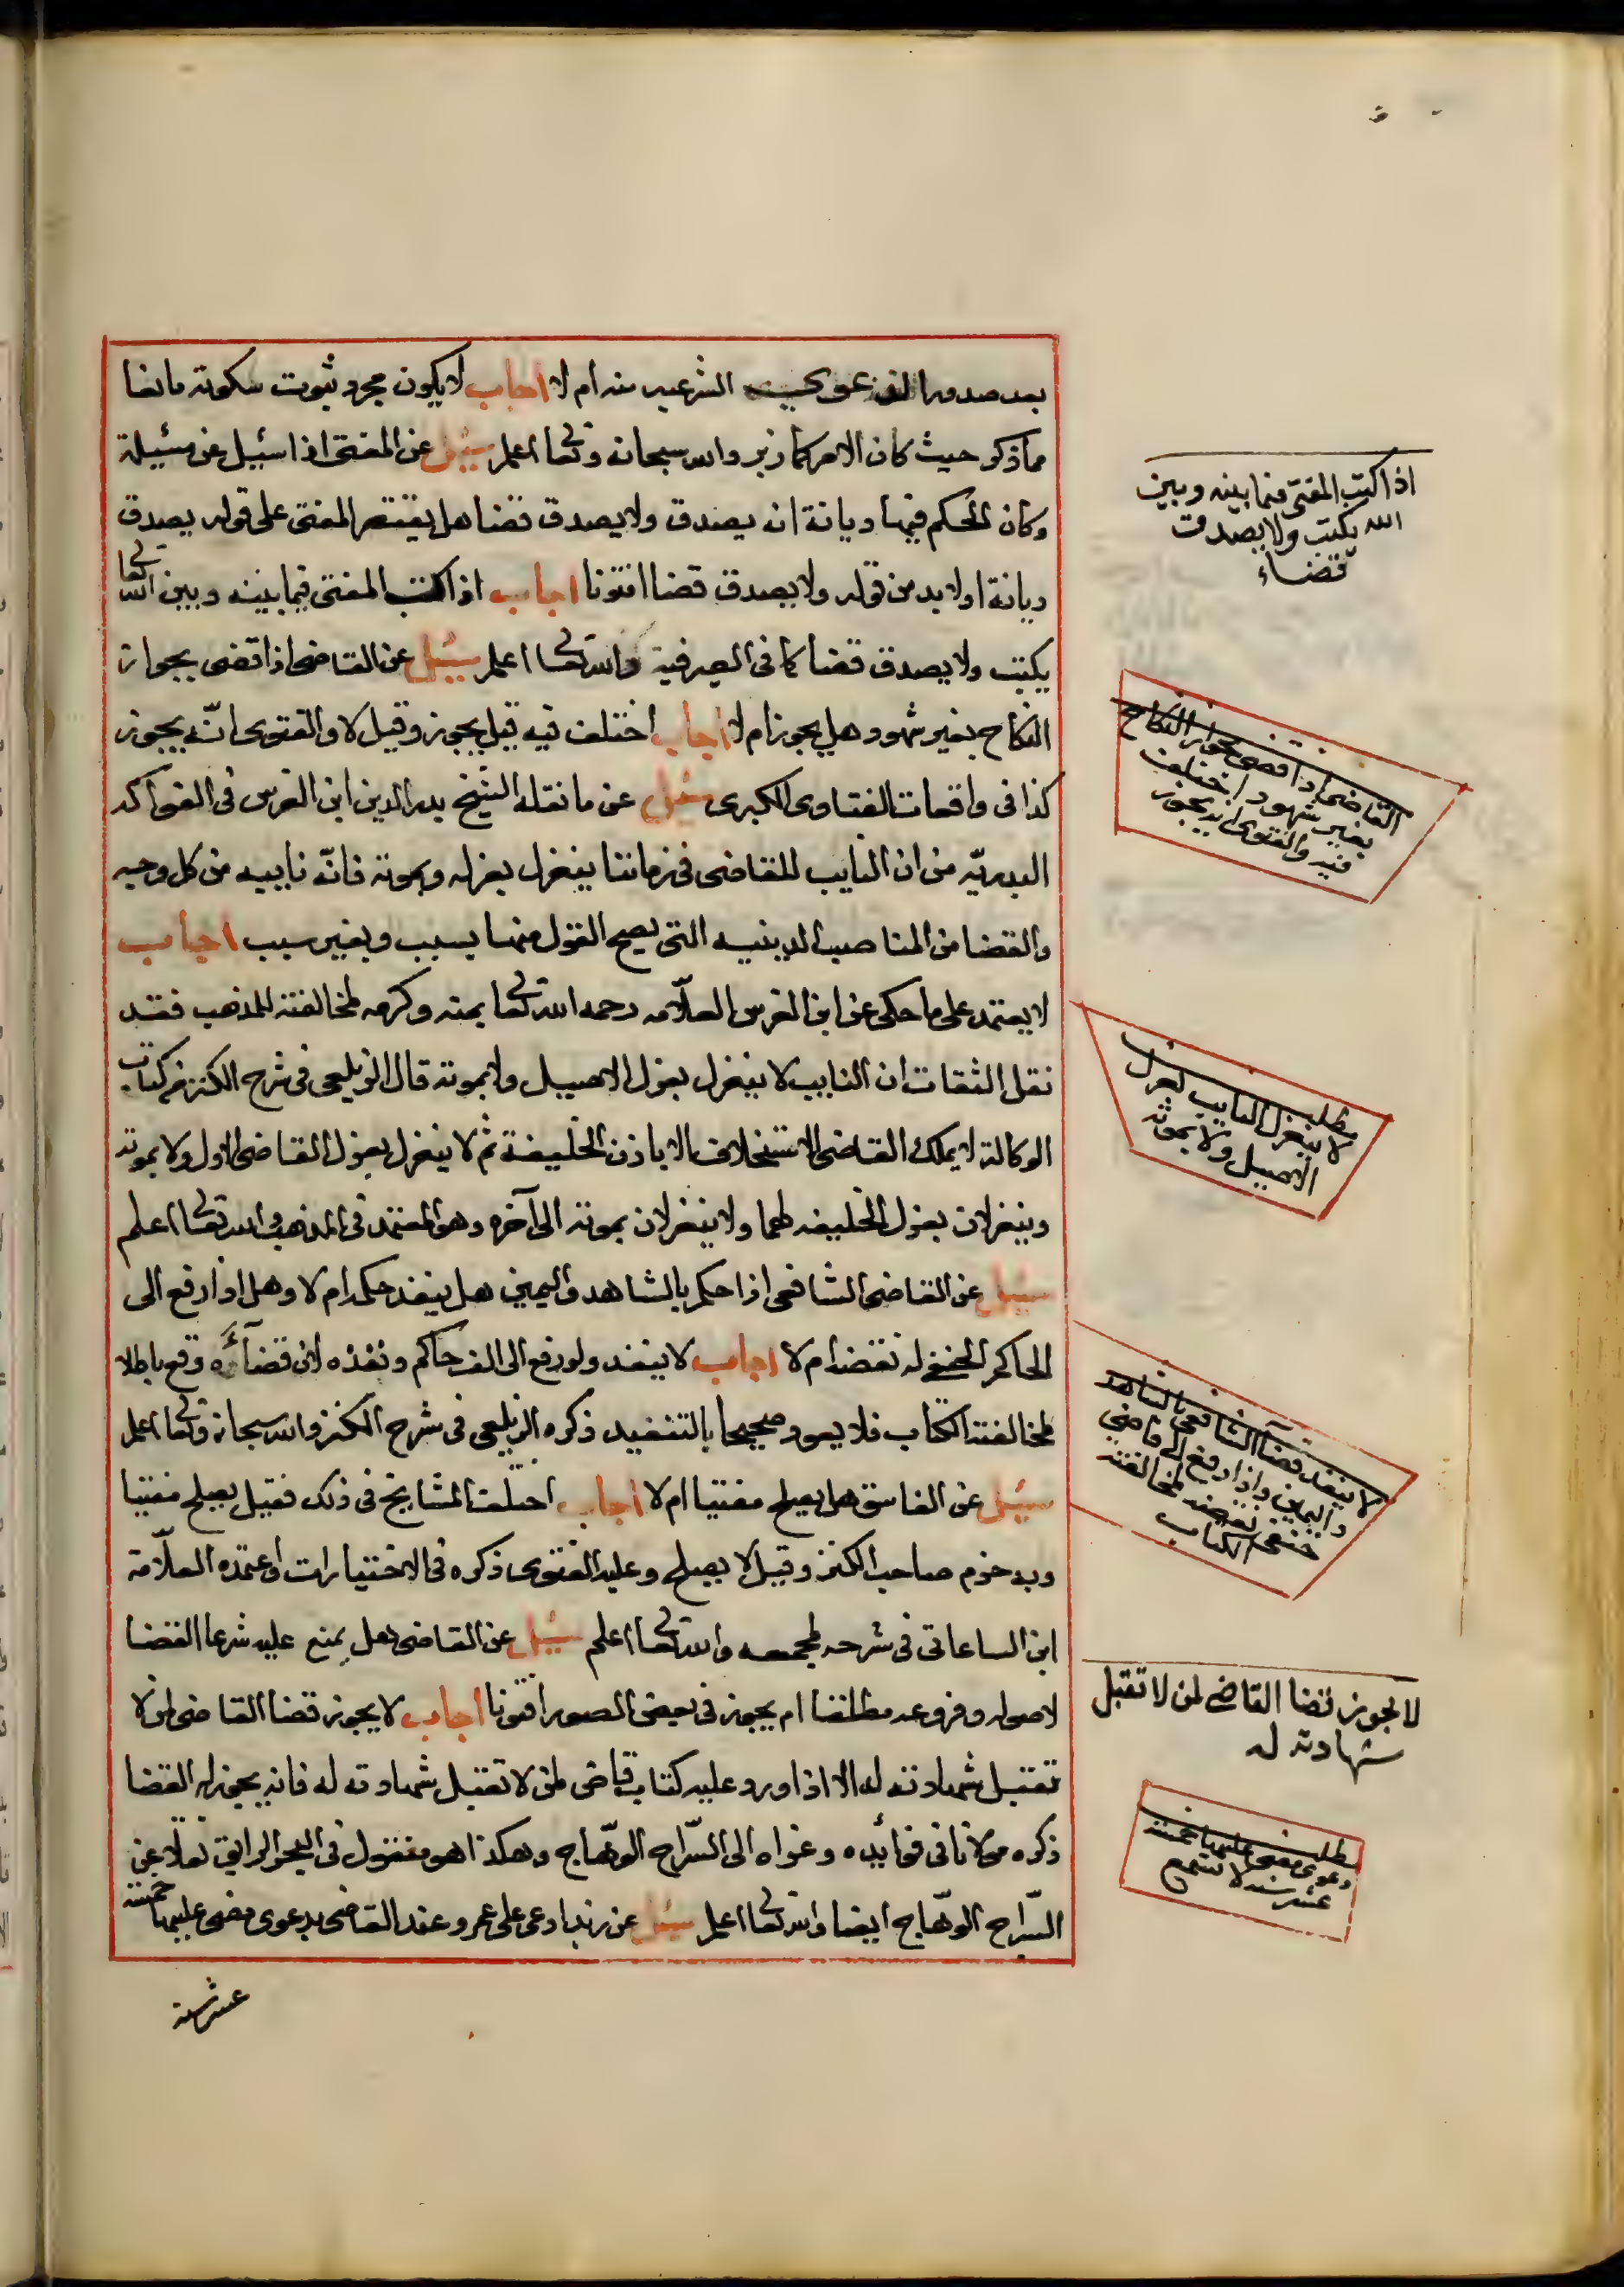 بعد صدور الدعوى الشرعيه منه ام لا اجاب لا يكون مجرد ثبوت سكوته مانعا
مما ذكر حيث كان الامر كما زبر والله سبحانه وتعالى اعلم سئيل عن المفتى اذا سئيل عن مسئيلة
وكان الحكم فيها ديانة انه يصدق ولا يصدق قضا هل يقتصر المفتى على قوله يصدق
ديانة او لا بد من قوله ولا يصدق قضا افتونا اجاب اذا كتب المفتى فيما بينه وبين الله تعالى
يكتب ولا يصدق قضا كما فى الصيرفية والله تعالى اعلم سئيل عن القاضى اذا قضى بجواز
النكاح بغير شهود هل يجوز ام لا اجاب اختلف فيه قيل يجوز وقيل لا والفتوى انّه يجوز
كذا فى واقعات الفتاوى الكبرى سئيل عن ما نقله الشيخ بدر الدين ابن الغرس فى الفواكه
البدريّه من ان النايب للقاضى فى زماننا ينعزل بعزله وبموته فانّه نايبه من كل وجه
والقضا من المناصب الدينيه التى يصح العزل منها بسبب وبغير سبب اجاب
لا يعتمد على ما حكى عن ابن الغرس العلّامه رحمه الله تعالى بمنه وكرمه لمخالفته للمذهب فقد
نقل الثقات ان النايب لا ينعزل بعزل الاصيل ولا بموته قال الزيلعى فى شرح الكنز من كتاب
الوكالة لا يملك القاضى الاستخلاف الا باذن الخليفة ثم لا ينعزل بعزل القاضى الاول ولا بموته
وينعزلان بعزل الخليفه لهما ولا ينعزلان بموته الى آخره وهو المعتمد فى المذهب والله تعالى اعلم
سئيل عن القاضى الشافعى اذا حكم بالشاهد واليمين هل ينفذ حكمه ام لا وهل اذا رفع الى
الحاكم الحنفى له نقضه ام لا اجاب لا ينفذ ولو رفع الى الف حاكم ونفذه لان قضآئه وقع باطلا
لمخالفته الكتاب فلا يعود صحيحا بالتنفيد ذكره الزيلعى فى شرح الكنز والله سبحانه وتعالى اعلم
سئيل عن الفاسق هل يصلح مفتيا ام لا اجاب اختلف المشايخ فى ذلك فقيل يصلح مفتيا
وبه جزم صاحب الكنز وقيل لا يصلح وعليه الفتوى ذكره فى الاختيارات واعتمده العلّامة
ابن الساعاتى فى شرحه لمجمعه والله تعالى اعلم سئيل عن القاضى هل يمنع عليه شرعا القضا
لاصوله وفروعه مطلقا ام يجوز فى بعض الصور افتونا اجاب لا يجوز قضا القاضى لمن لا
تقبل شهادته له الا اذا ورد عليه كتاب قاضى لمن لا تقبل شهادته له فانه يجوز له القضا
ذكره مولانا فى فوائده وعزاه الى السّراج الوهّاج وهكذا هو منقول فى البحر الرايق نقلا عن
السّراج الوهّاج ايضا والله تعالى اعلم سئيل عن زيد ادعى على عمرو عند القاضى بدعوى مضى عليها خمسة
عشر سنة
اذا كتب المفتى فيما بينه وبين
الله يكتب ولا يصدق
قضاء
القاضى اذا قضى بجواز النكاح
بغير شهود اختلف
فيه والفتوى انه يجوز
مطلب
لا ينعزل النايب بعزل
الاصيل ولا بموته
لا ينفذ قضآ الشافعى بالشاهد
واليمين واذا رفع الى قاضى
حنفى نقضه لمخالفته
الكتاب
لا يجوز قضا القاضى لمن لا تقبل
شهادته له
مطلب
دعوى مضى عليها خمسة
عشر سنة لا تسمع